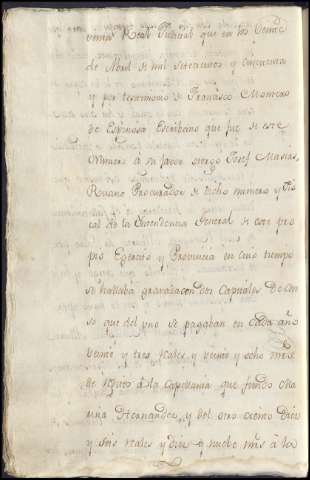 venta Real Judicial que en los Veinte
de Abril de mil setecientos y cinquenta
y por testimonio de Francisco Montero
de Espinosa Escribano que fue de este
Numero a su favor otorgo Josef Masias
Ruano Procurador de dicho numero y
cal de la Yntendencia General de este pro
pio Egercito y Provincia en cuio tiempo
se hallaba gravaza con dos Capitales de Cen
so que del uno se pagaban en cada año
Veinte y tres reales y veinte y ocho mrs
de reditos á la Capellania que fundo
Hernandez, y del otro ciento Diez
y seis reales y diez y nuebe mrs á la